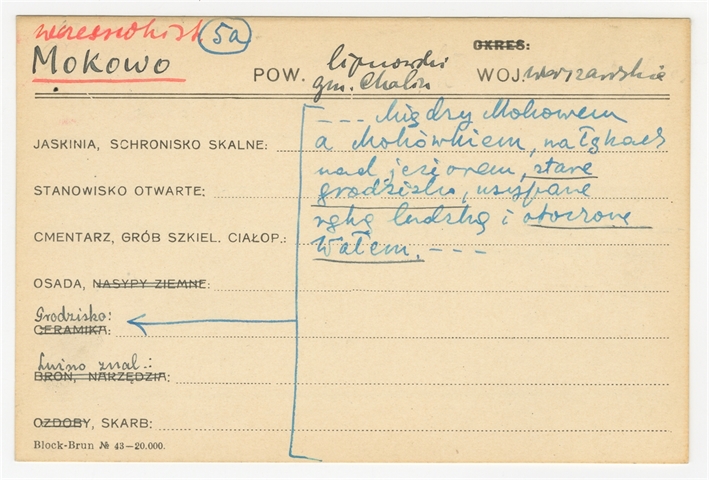 wczesnohist. 5a
Mokowo
POW. lipnowski
gm. Chalin
OKRES:
WOJ. warszawskie
--- Między Mokowem
a Mokówkiem, na łąkach
nad jeziorem, stare
grodzisko, usypane
ręką ludzką i otoczone
wałem. ---
JASKINIA, SCHRONISKO SKALNE:
STANOWISKO OTWARTE:
CMENTARZ, GRÓB SZKIEL. CIAŁOP.:
OSADA, NASYPY ZIEMNE:
Grodzisko:
CERAMIKA:
Luźno znal.:
BROŃ, NARZĘDZIA:
OZDOBY, SKARB:
Block-Brun № 43—20.000.